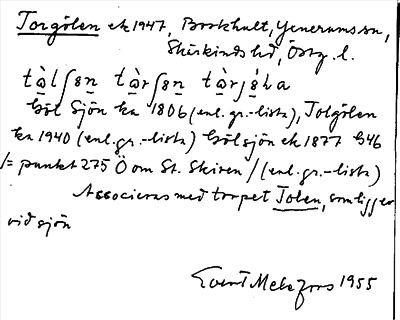 Torgölen ek 1947, Borkhult, Yxnerums sn,
Skärkinds hd, Östg. l.
Göl Sjön ka 1806 (enl. gr.-lista), Tolgölen
ka 1940 (enl. gr.-lista) Gölsjön ek 1877 G46
/= punkt 275 Ö om St. Skiren / (enl. gr.-lista)
Associeras med torpet Tolen, som ligger
vid sjön
1955